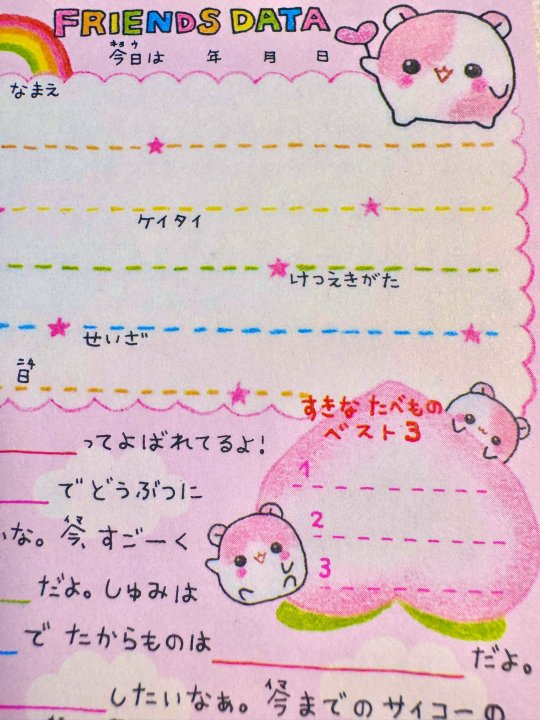 FRIENDS DATA
今日は 年 月 日
なまえ
ケイタイ
けつえきがた
せいざ
日
すきな たべもの
ベスト3
1
2
3
ってよばれてるよ!
でどうぶつに
いな。今、すごーく
だよ。しゅみは
で たからものは
だよ。
したいなぁ。今までのサイコーの